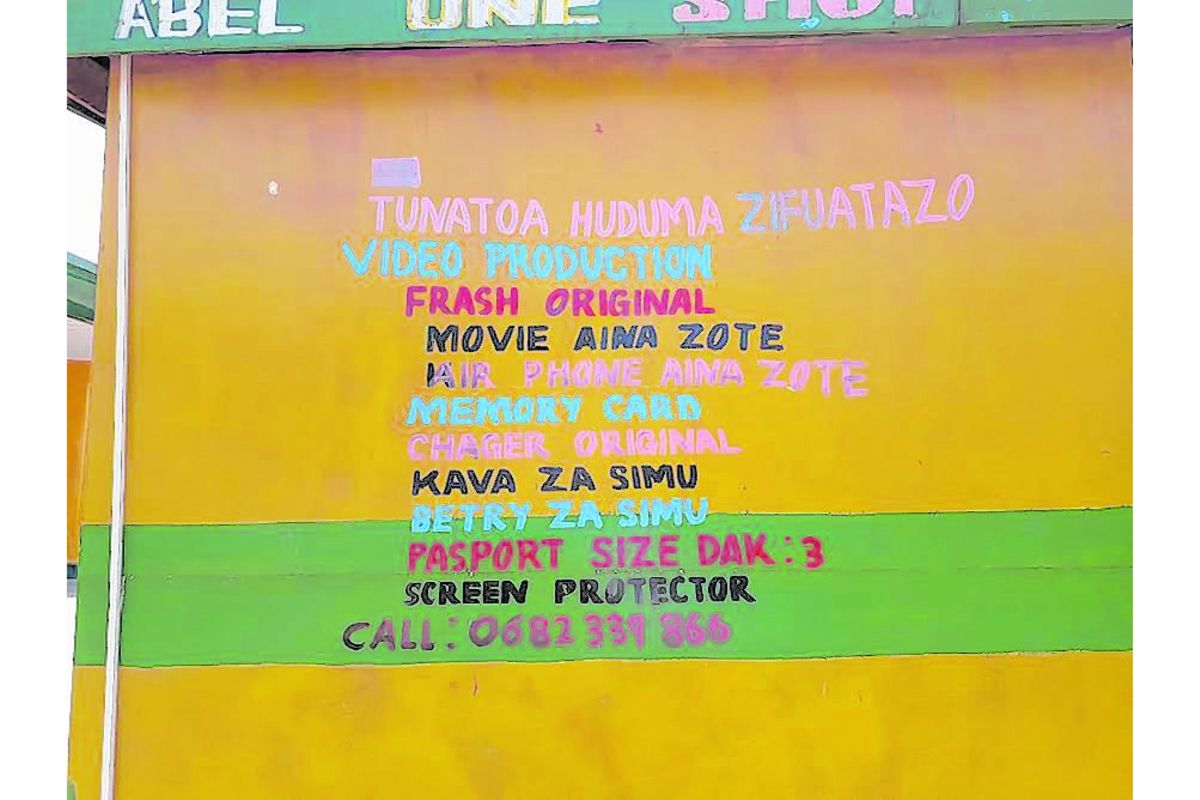 ABEL ONE SHOP
TUNATOA HUDUMA ZIFUATAZO
VIDEO PRODUCTION
FRASH ORIGINAL
MOVIE AINA ZOTE
AIR PHONE AINA ZOTE
MEMORY CARD
CHAGER ORIGINAL
KAVA ZA SIMU
BETRY ZA SIMU
PASPORT SIZE DAK: 3
SCREEN PROTECTOR
CALL: 0682 339 866